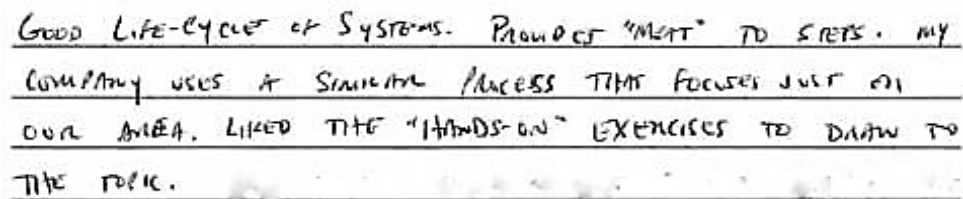 GOOD LIFE-CYCLE OF SYSTEMS. PROVIDES "MEAT" TO STEPS. MY
COMPANY USES A SIMILAR PROCESS THAT FOCUSES JUST ON
OUR AREA. LIKED THE "HANDS-ON" EXERCISES TO DRAW TO
THE TOPIC.